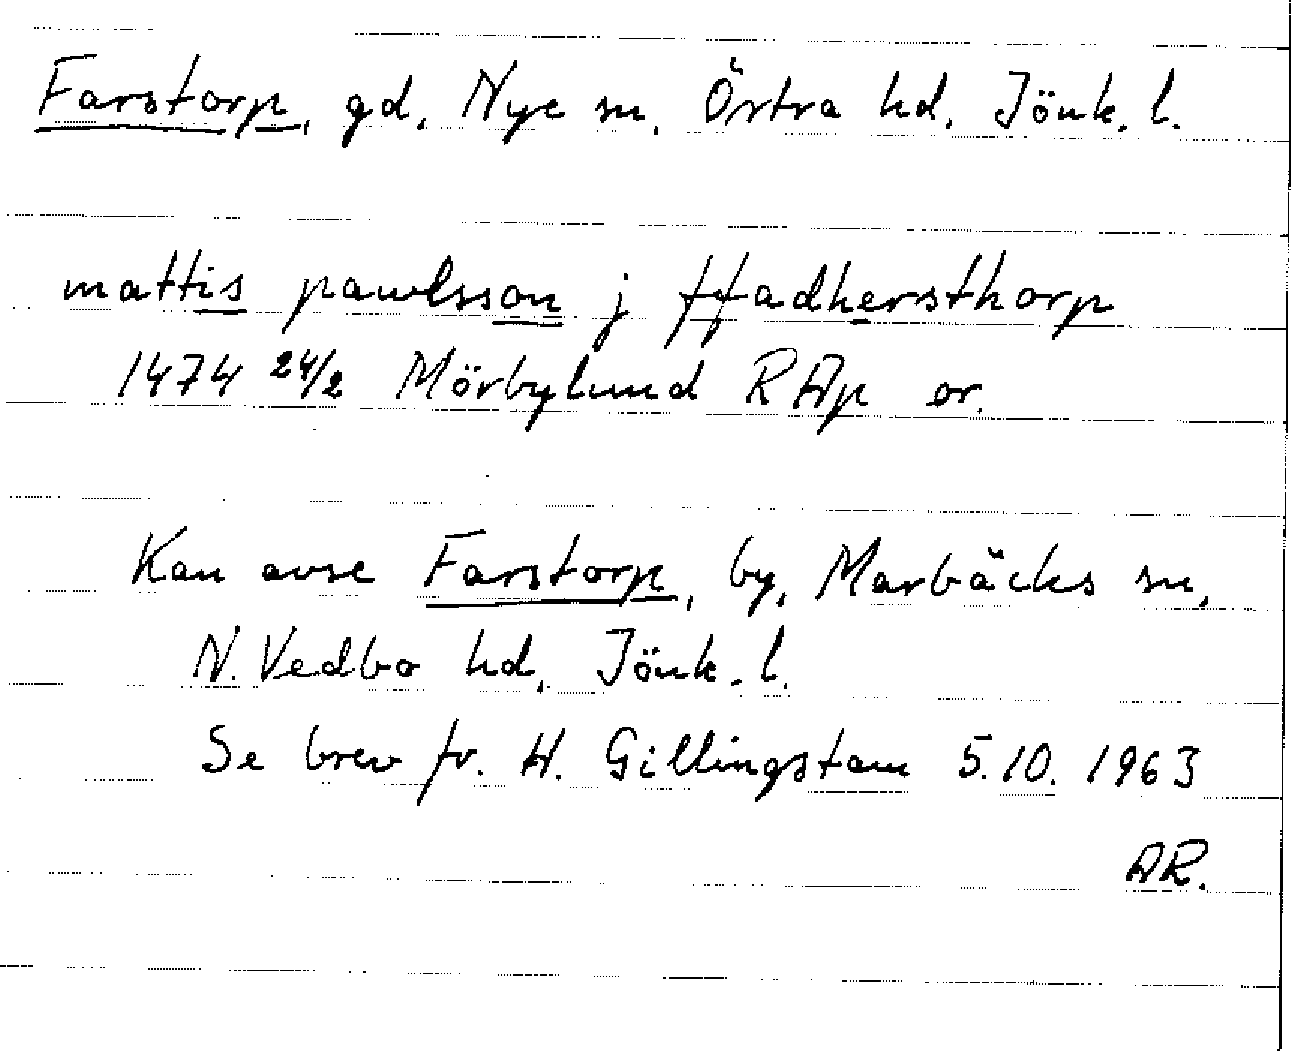 Farstorp, gd, Nye sn, Östra hd, Jönk. l.
mattis pawlsson j ffadhersthorp
1474 24/2 Mörbylund RAp or.
Kan avse Farstorp, by, Marbäcks sn,
N. Vedbo hd, Jönk. l.
Se brev fr. H. Gillingstam 5.10.1963
AR.